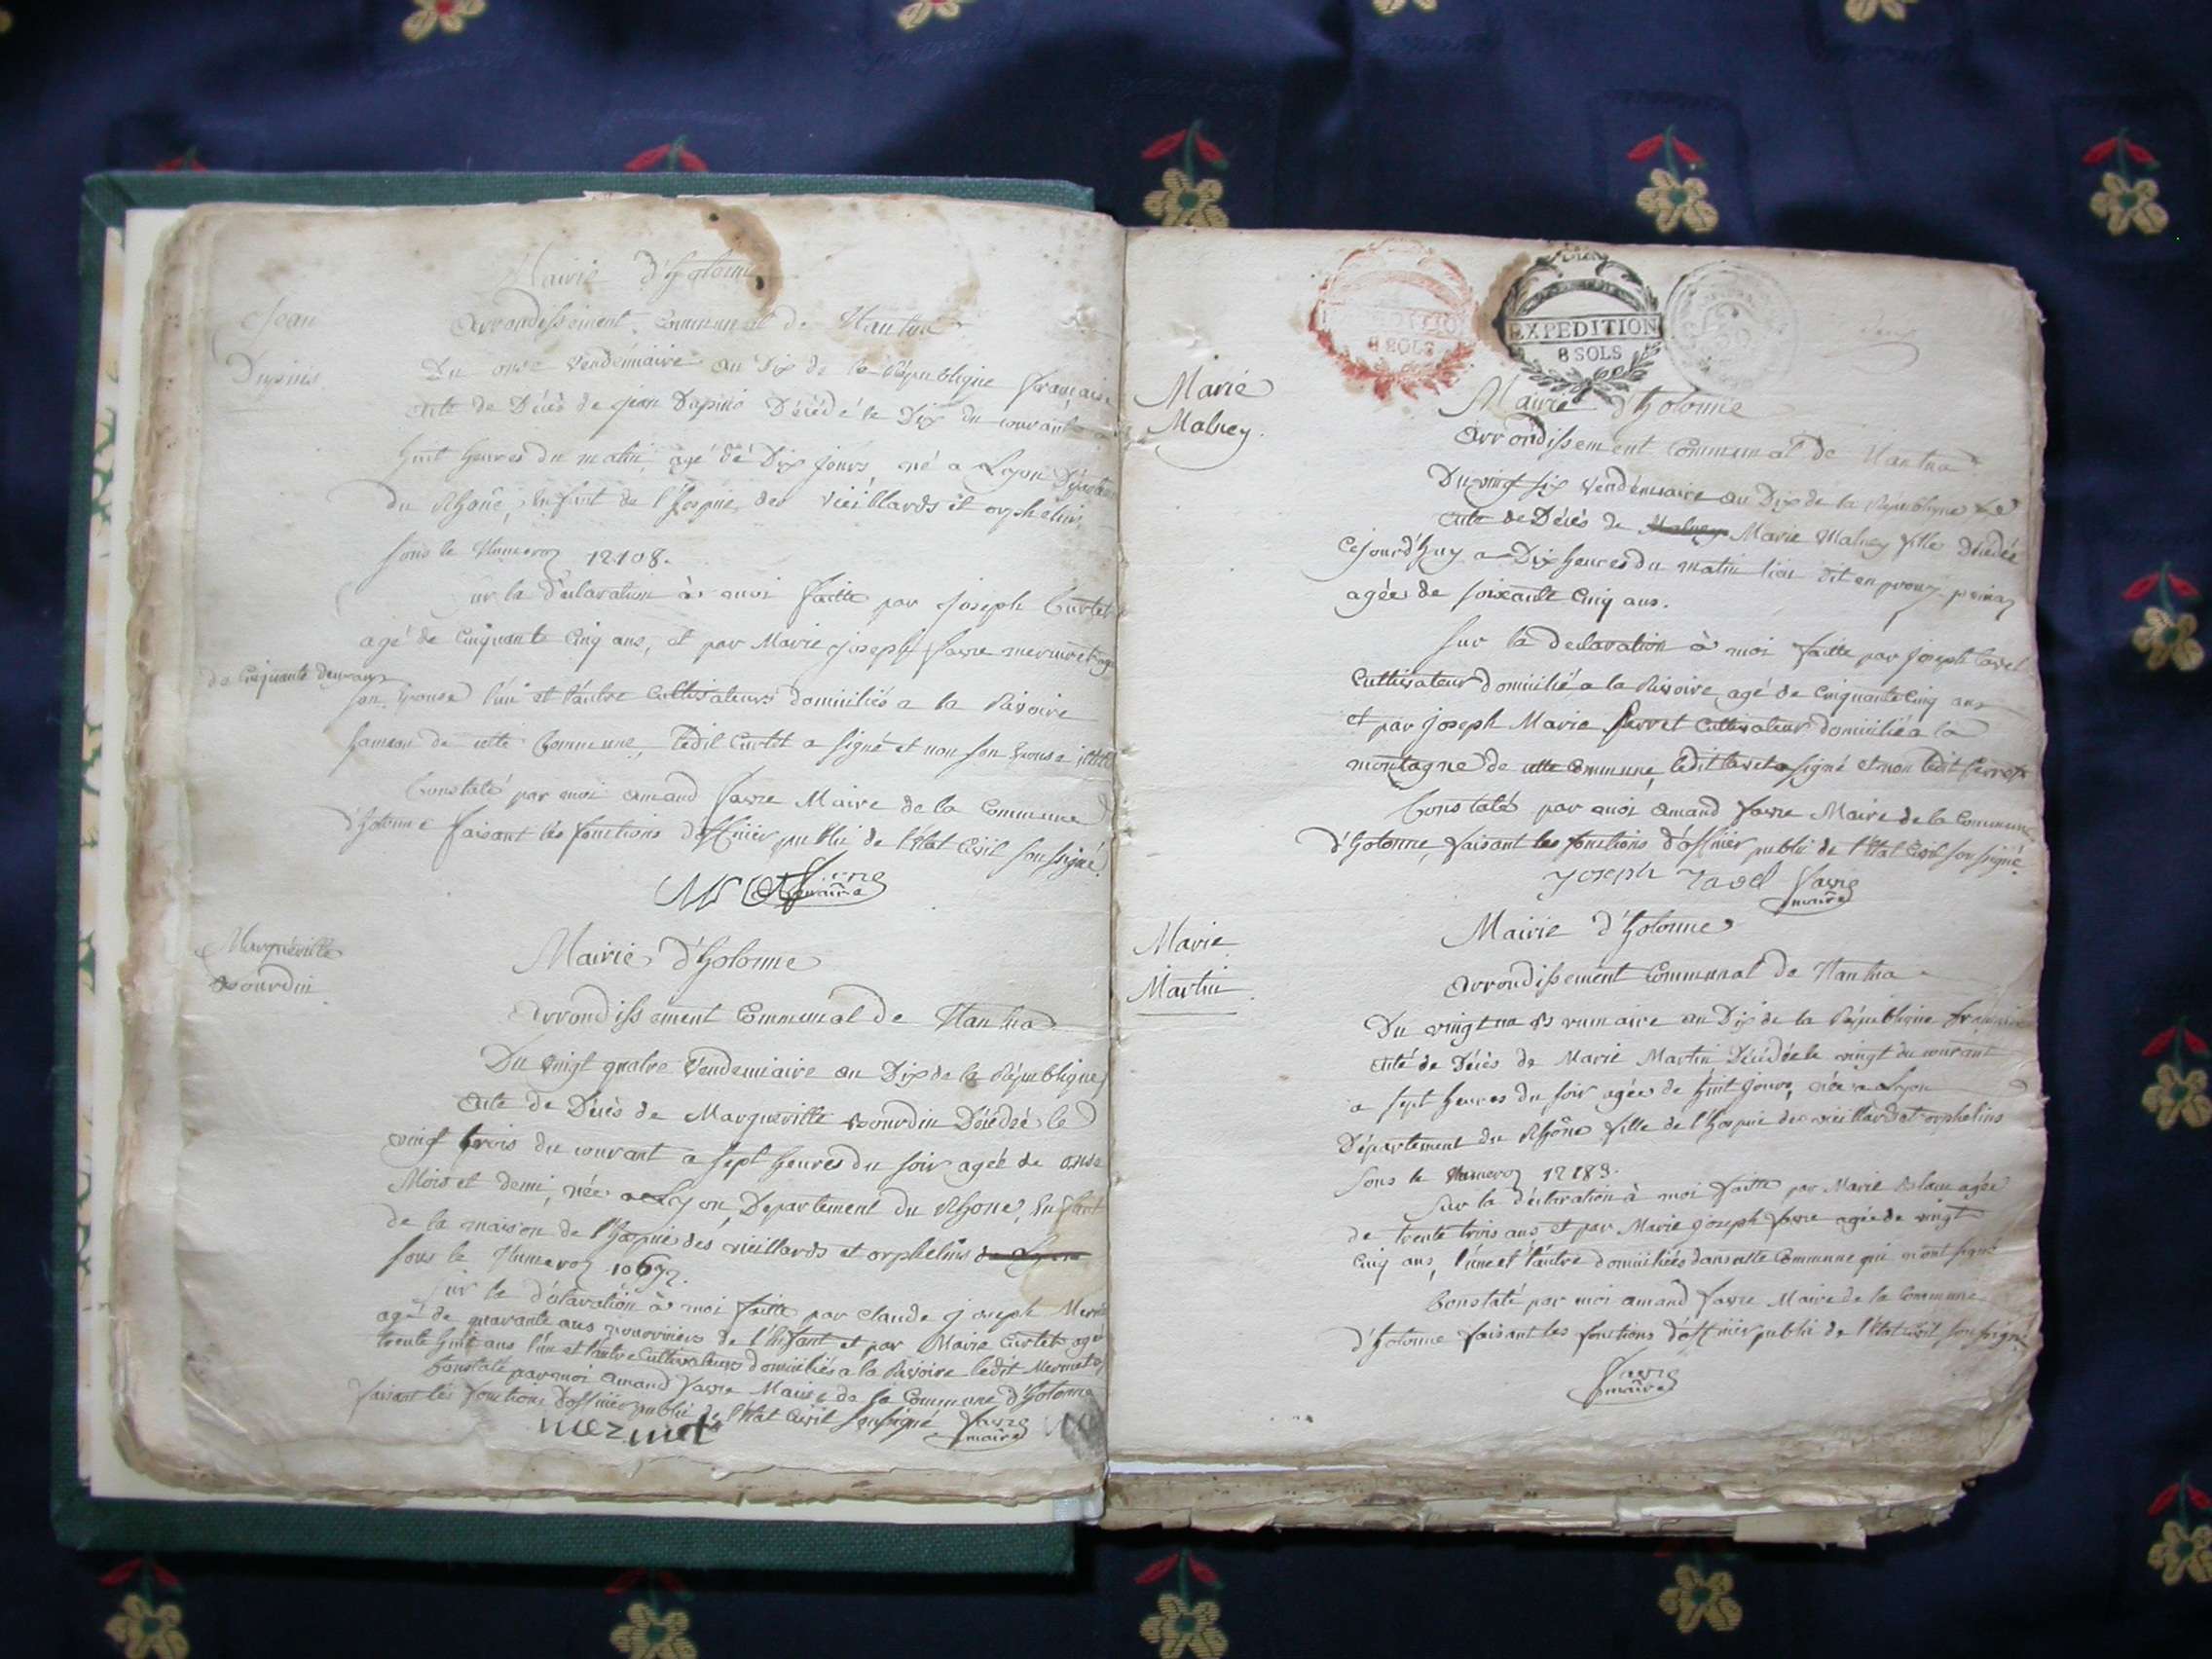 Mairie d'hotonne
Jean
Dupins
Arrondissement Communal de Nantua
Du onze Vendémiaire an Dix de la République française
Acte de Décès de jean Dupins Décédé le Dix du courant a
huit heures du matin, agé de Dix jours, né a Lyon Départem
du Rhône, Enfant de l'hospice des vieillards et orphelins
sous le Numero 12108.
Sur la Déclaration à moi faitte par joseph Curtet
agé de Cinquante Cinq ans, et par Marie joseph favre mermet agé
de Cinquante deux ans
son Epouse l'un et l'autre Cultivateurs domiciliés a la Rivoire
hameau de cette Commune, ledit Curtet a signé et non son Epouse
Constaté par moi amand favre Maire de la Commune
d'hotonne faisant les fonctions d'officier public de l'état Civil soussigné
favre
maire
Margueritte
Bourdin
Mairie d'hotonne
Arrondissement Communal de Nantua
Du vingt quatre Vendemiaire an Dix de la République
Acte de Décès de Margueritte Bourdin Décédée le
vingt trois du courant a sept heures du soir agée de onze
Mois et demi, née a Lyon, Département du Rhone, Enfant
de la maison de l'hospice des vieillards et orphelins de Lyon
sous le Numero 10672.
Sur la déclaration à moi faitte par Claude joseph Mermet
agé de quarante ans nourriciers de l'Enfant et par Marie Curtet agée
trente huit ans l'un et l'autre Cultivateurs domiciliés a la Rivoire ledit Mermet a
Constaté par moi Amand favre Maire de la Commune d'hotonne
faisant les fonctions d'officier public de l'état Civil soussigné favre
maire
mermet
EXPEDITION
8 SOLS
EXPEDITION
8 SOLS
Marie
Malney.
Mairie d'hotonne
Arrondissement Communal de Nantua
Du vingt six Vendémiaire an Dix de la République
Acte de Décès de Malney Marie Malney fille décédée
Cejourd'huy a Dix heures du matin lieu dit en
agée de soixante Cinq ans.
Sur la declaration à moi faitte par joseph tavel
Cultivateur domicilié a la Rivoire, agé de Cinquante Cinq ans
et par joseph Marie perret Cultivateur domicilié a la
montagne de cette Commune, ledit tavel a signé et non ledit perret
Constaté par moi Amand favre Maire de la Commune
d'hotonne, faisant les fonctions d'officier public de l'état Civil soussigné
joseph tavel favre
maire
Marie
Martin
Mairie d'hotonne
Arrondissement Communal de Nantua
Du vingt un Brumaire an Dix de la République française
Acte de Décès de Marie Martin Décédée le vingt du courant
a sept heures du soir agée de huit jours, née a Lyon
Département du Rhône fille de l'hospice des vieillards et orphelins
sous le Numero 12189.
Sur la déclaration à moi faitte par Marie Blanc agée
de trente trois ans, et par Marie joseph favre agée de vingt
Cinq ans, l'une et l'autre domiciliées dans cette Commune qui n'ont signé
Constaté par moi amand favre Maire de la Commune
d'hotonne faisant les fonctions d'officier public de l'état Civil soussigné
favre
maire